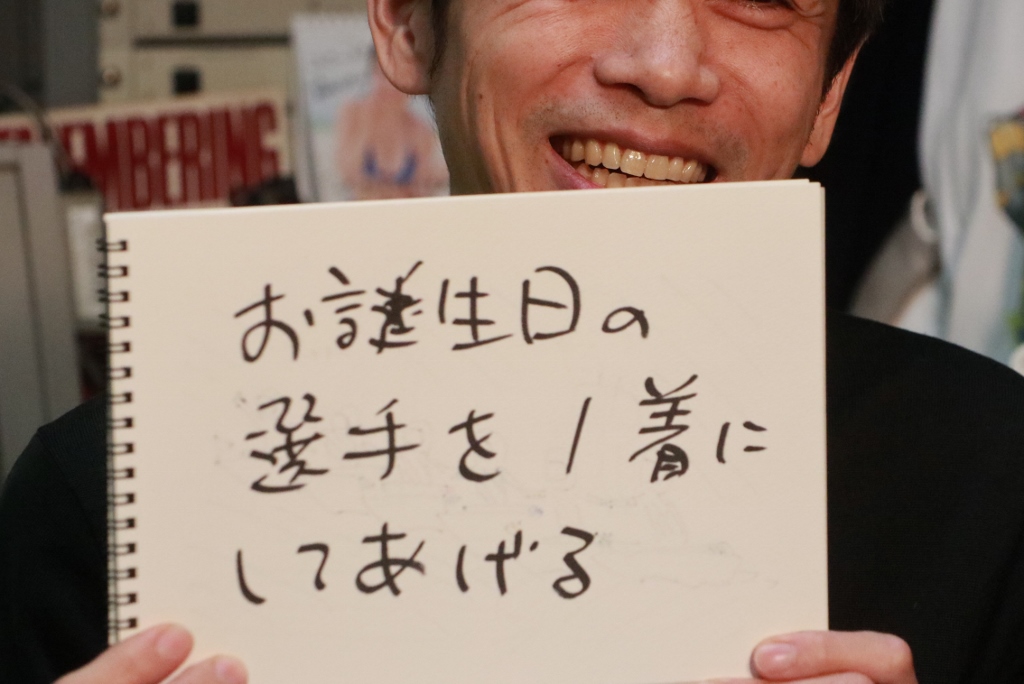 EMBERING
お誕生日の
選手を1着に
してあげる